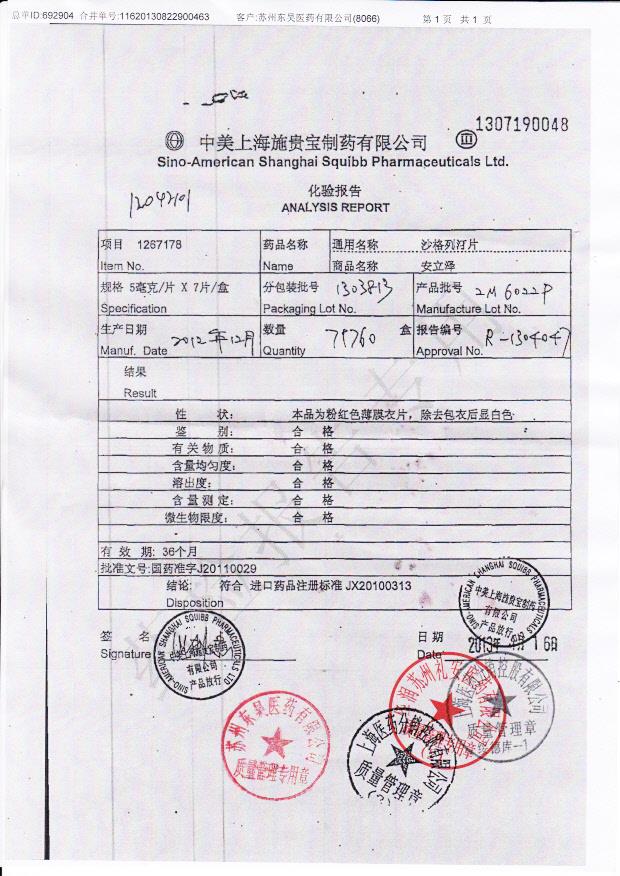 总单ID:692904 合并单号:11620130822900463 客户:苏州东吴医药有限公司(8066) 第 1 页 共 1 页
1307190048
中美上海施贵宝制药有限公司
Sino-American Shanghai Squibb Pharmaceuticals Ltd.
化验报告
ANALYSIS REPORT
项目 1267178 药品名称 通用名称 沙格列汀片
Item No. Name 商品名称 安立泽
规格 5毫克/片 X 7片/盒 分包装批号 1303813 产品批号 2M6022P
Specification Packaging Lot No. Manufacture Lot No.
生产日期 2012年12月 数量 79760 盒 报告编号 R-1304047
Manuf. Date Quantity Approval No.
结果
Result
性 状: 本品为粉红色薄膜衣片，除去包衣后显白色
鉴 别: 合 格
有关物质: 合 格
含量均匀度: 合 格
溶出度: 合 格
含量测定: 合 格
微生物限度: 合 格
有 效 期: 36个月
批准文号:国药准字J20110029
结论: 符合 进口药品注册标准 JX20100313
Disposition
签 名 日 期
Signature Date
SINO-AMERICAN SHANGHAI SQUIBB PHARMACEUTICALS LTD
中美上海施贵宝制药
有限公司
产品放行
SINO-AMERICAN SHANGHAI SQUIBB PHARMACEUTICALS LTD
有限公司
产品放行
苏州东吴医药有限公司
质量管理专用章
质量管理章
质量管理章